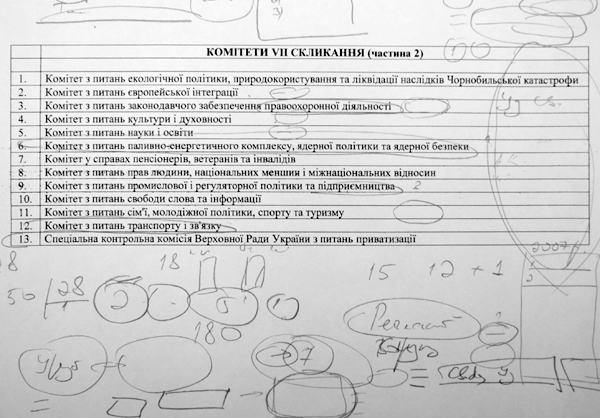 КОМІТЕТИ VII СКЛИКАННЯ (частина 2)
1. Комітет з питань екологічної політики, природокористування та ліквідації наслідків Чорнобильської катастрофи
2. Комітет з питань європейської інтеграції
3. Комітет з питань законодавчого забезпечення правоохоронної діяльності
4. Комітет з питань культури і духовності
5. Комітет з питань науки і освіти
6. Комітет з питань паливно-енергетичного комплексу, ядерної політики та ядерної безпеки
7. Комітет у справах пенсіонерів, ветеранів та інвалідів
8. Комітет з питань прав людини, національних меншин і міжнаціональних відносин
9. Комітет з питань промислової і регуляторної політики та підприємництва 2
10. Комітет з питань свободи слова та інформації
11. Комітет з питань сім'ї, молодіжної політики, спорту та туризму
12. Комітет з питань транспорту і зв'язку
13. Спеціальна контрольна комісія Верховної Ради України з питань приватизації
2007
18 15 12 + 1
50 28 2
180
Регламент
7